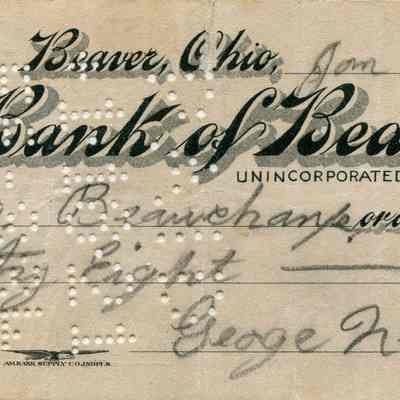 Beaver, Ohio, Jan
Bank of Bea
UNINCORPORATED
Beauchamp or
Eight
George N
AM. BANK SUPPLY CO. INDPLS.